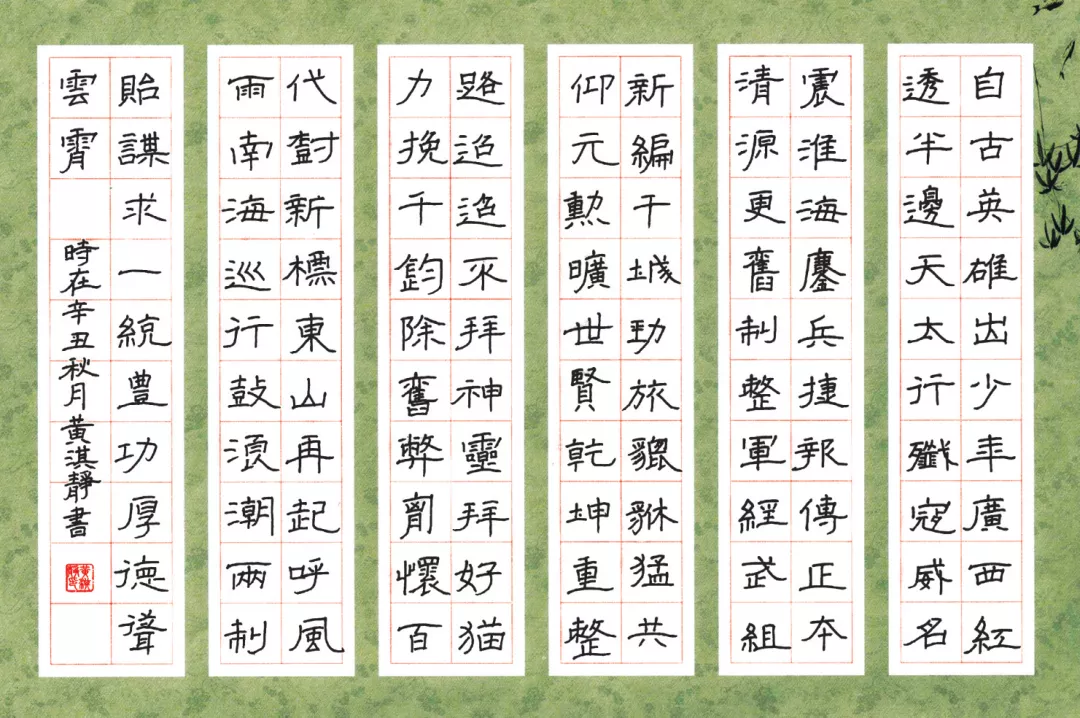 自古英雄出少年廣西紅
透半邊天太行殲寇威名
震淮海鏖兵捷報傳正本
清源更舊制整軍經武組
新編干城勁旅貔貅猛共
仰元勳曠世賢乾坤重整
路迢迢不拜神靈拜好猫
力挽千鈞除舊弊胸懷百
代樹新標東山再起呼風
雨南海巡行鼓浪潮兩制
貽謀求一統豊功厚德聳
雲霄
時在辛丑秋月黃淇靜書